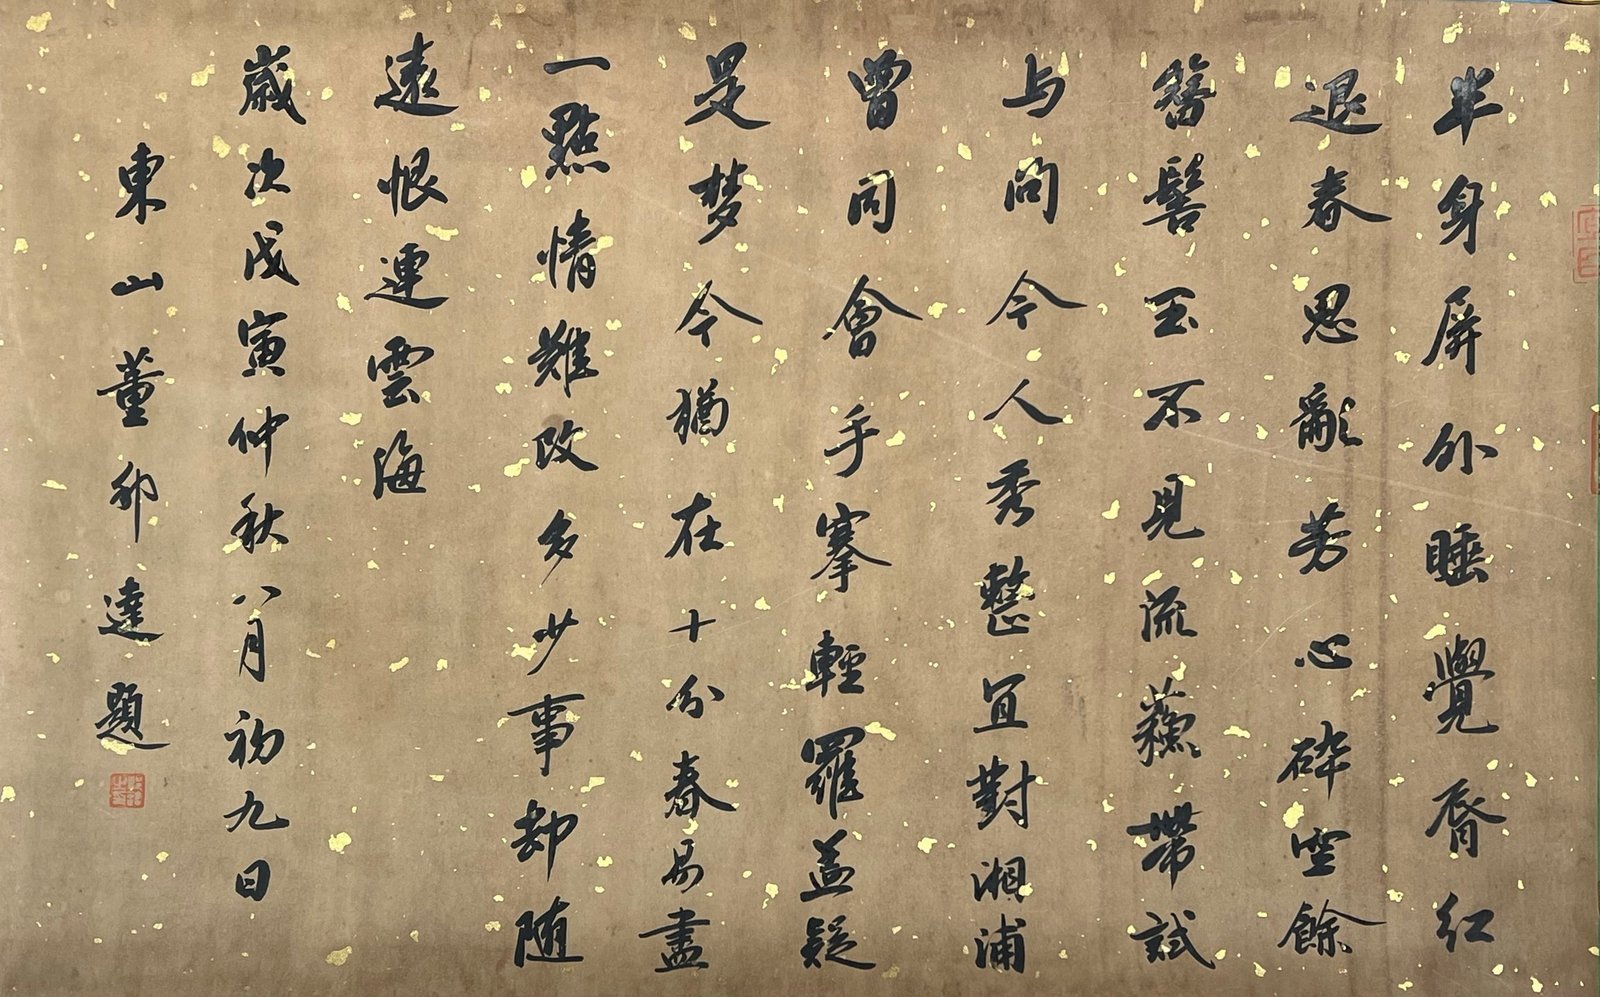 半身屏外睡覺脣紅
退春思亂芳心碎空餘
簪髻玉不見流蘓帶試
与問今人秀整宜對湘浦
曾同會手搴輕羅盖疑
是梦今猶在十分春易盡
一點情難改多少事却随
遠恨連雲海
歲次戊寅仲秋八月初九日
東山董邦達題